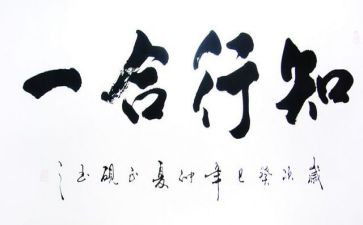 知行合一
歲次癸巳年仲夏硯書